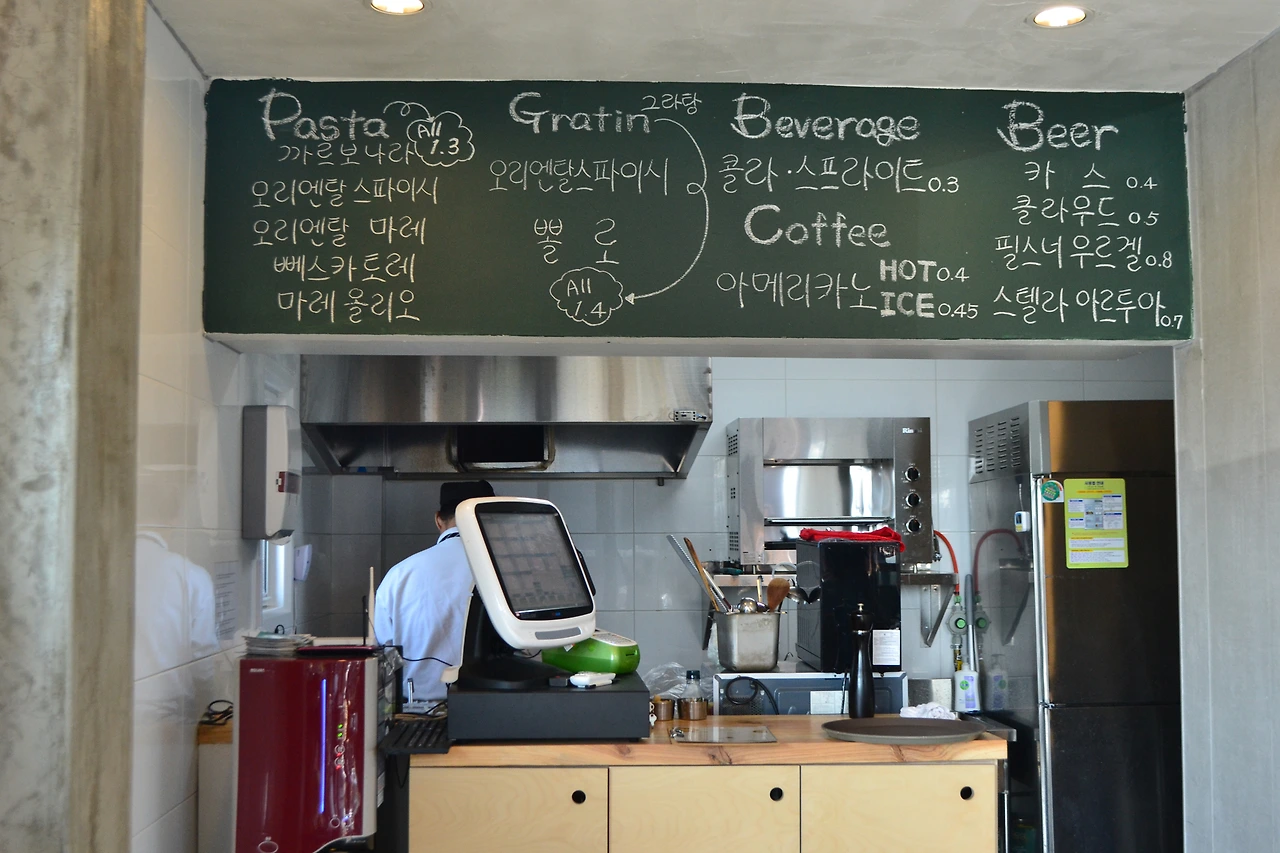 Pasta
All
1.3
까르보나라
오리엔탈 스파이시
오리엔탈 마레
뻬스카토레
마레 올리오
Gratin 그라탕
오리엔탈스파이시
뽈로
All
1.4
Beverage
콜라·스프라이트 0.3
Coffee
아메리카노 HOT 0.4
ICE 0.45
Beer
카스 0.4
클라우드 05
필스너 우르겔 0.8
스텔라 아르투아 0.7